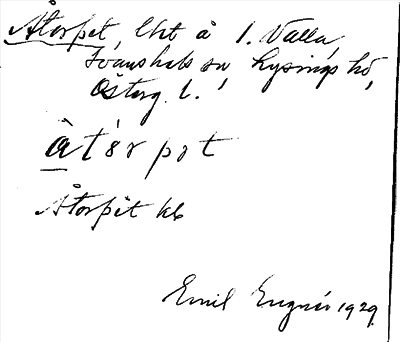 Åtorpet, lht å 1. Valla,
Svanshals sn Lysings hd,
Österg. l.
àtǝr pɔt
Åtorpèt kb
Emil Engnér 1929.